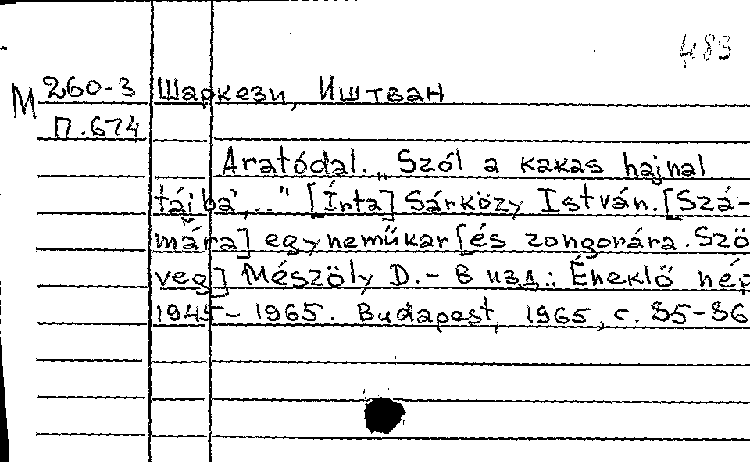 483
М 260-3 Шаркези, Иштван
П.674
Aratódal. „Szól a kakas hajnal
tájba',.." [Írta] Sárközy István. [Szá-
mára] egyneműkar [és zongorára. Szö
veg] Mészöly D. - В изд.: Éneklő nép
1945 - 1965. Budapest, 1965, с. 35-36